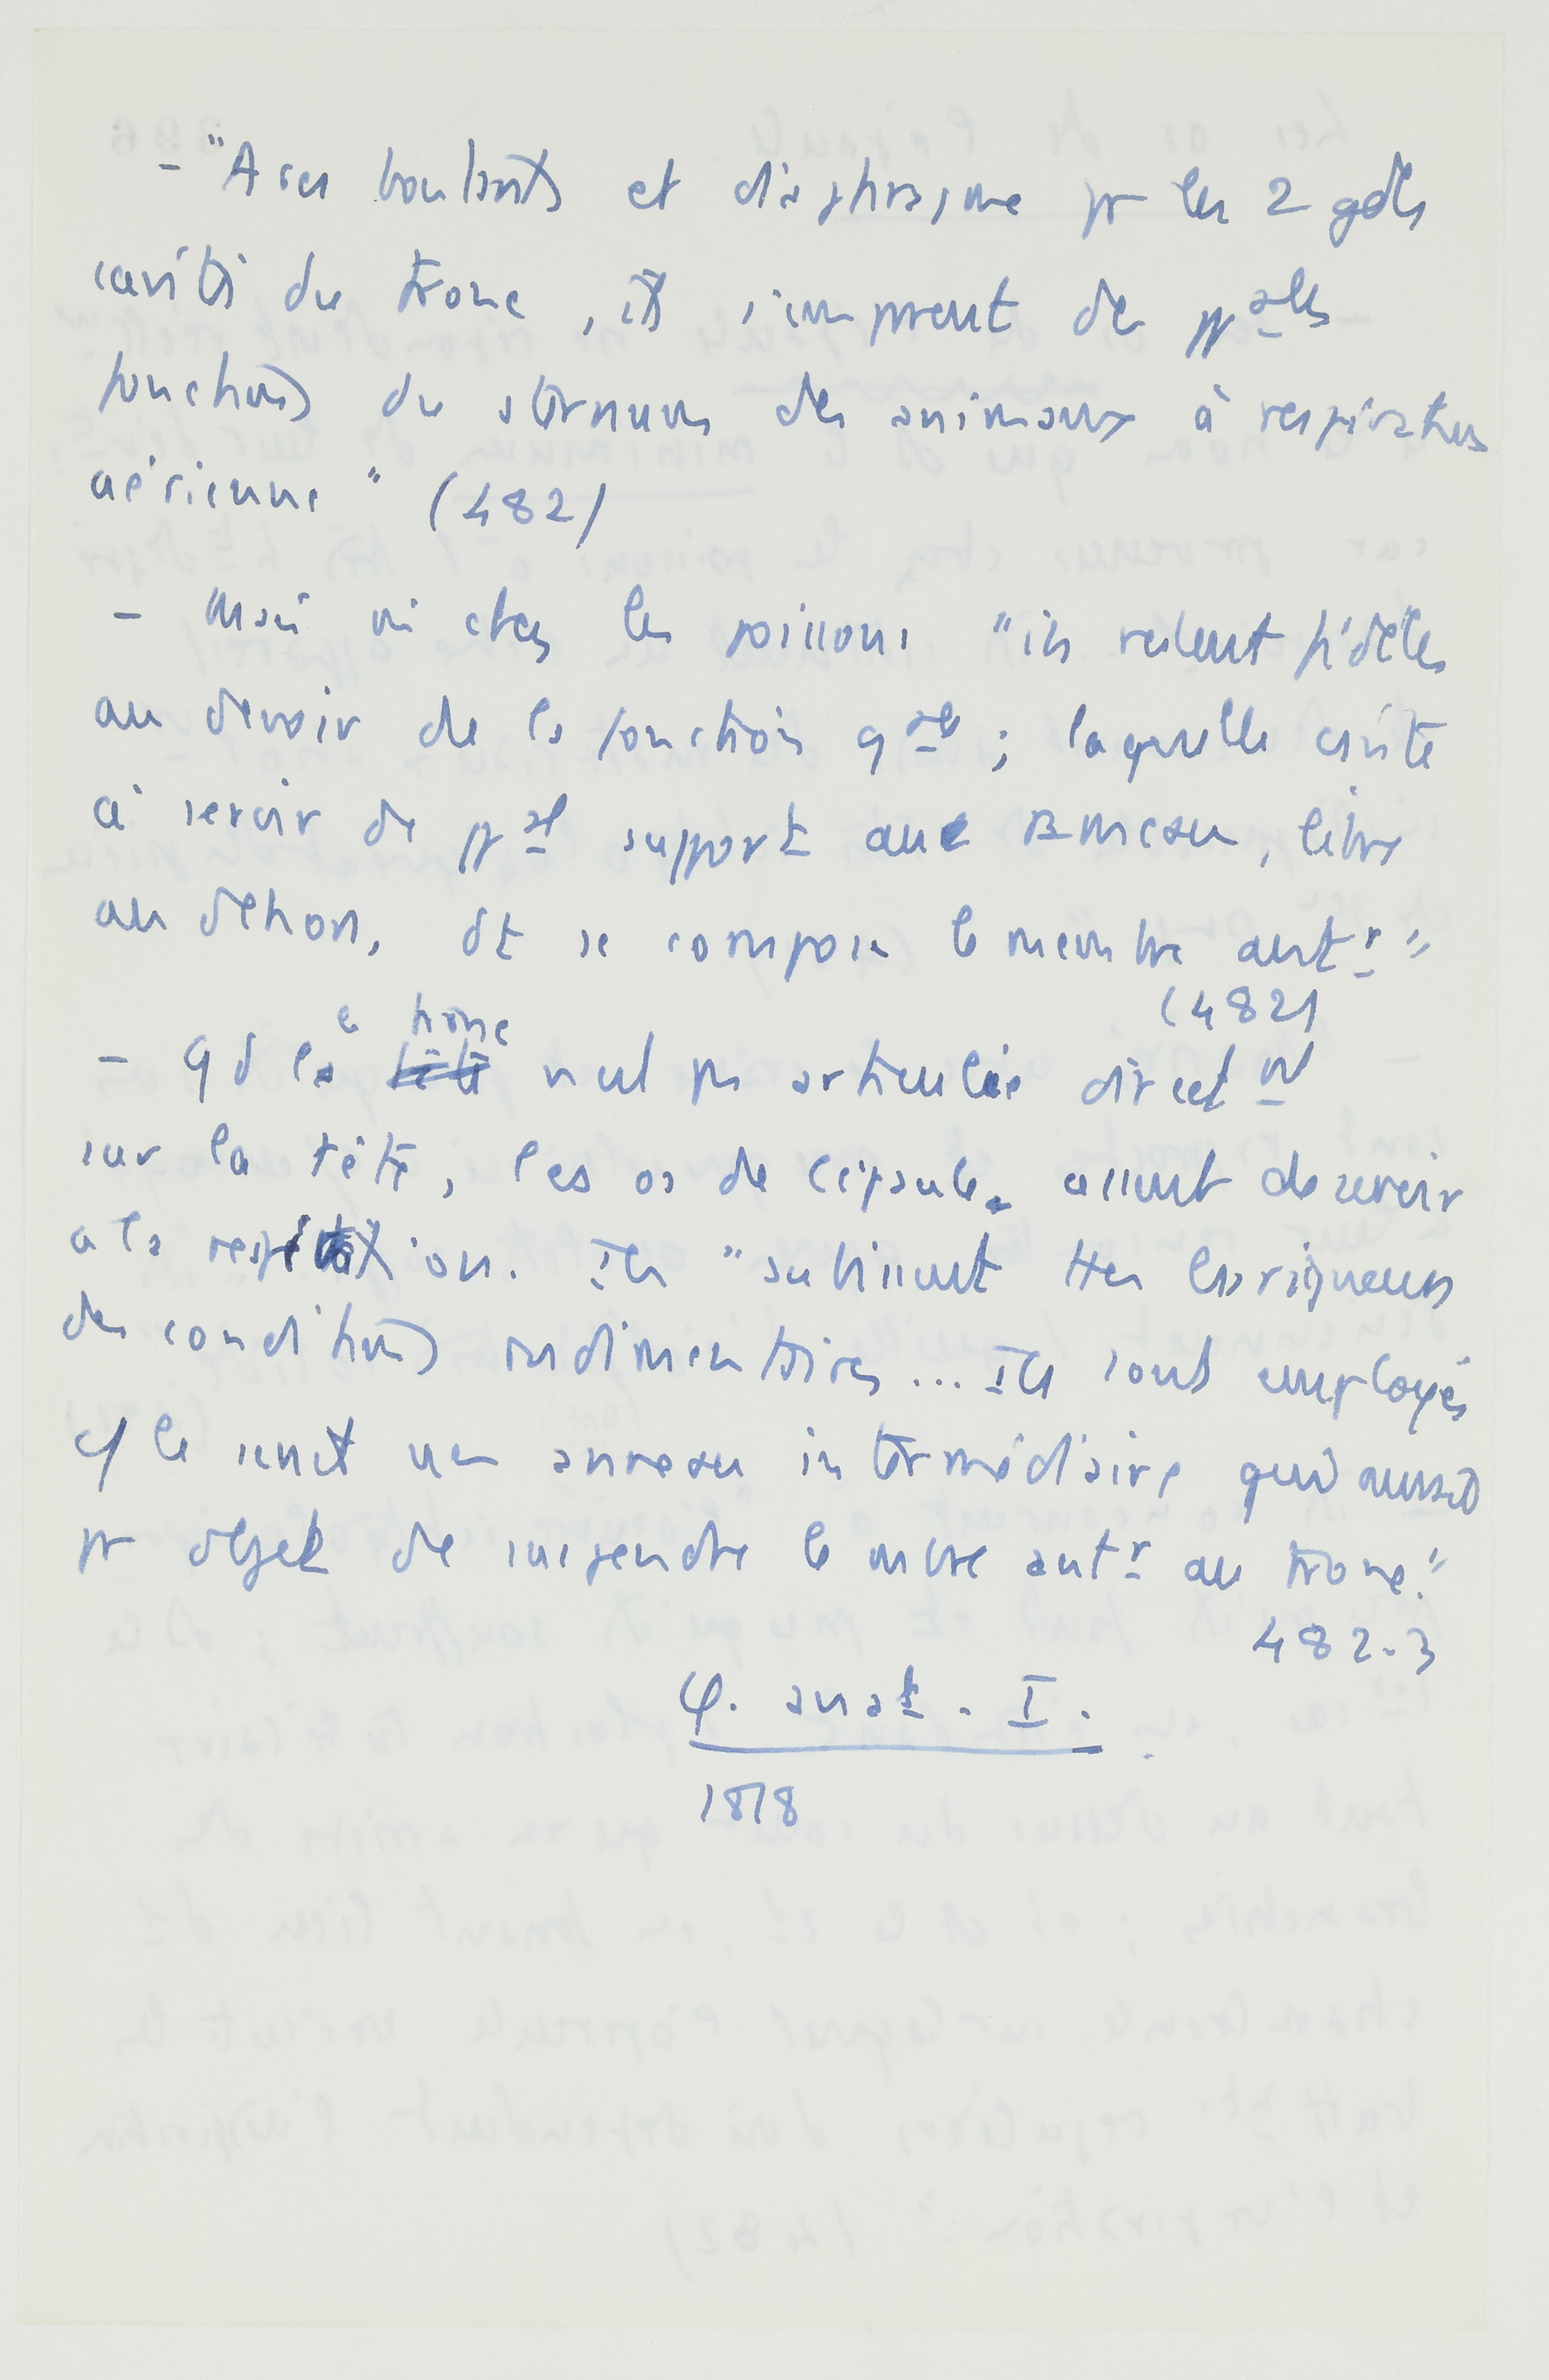 - "Arcs boutants et diaphragme pr les 2 gdes
cavités du tronc, ils s'emparent des ppales
fonctions du sternum des animaux à respiration
aérienne" (482)
- Mais ici chez les poissons "ils restent fidèles
au devoir de la fonction gale ; laquelle consiste
à servir de ppal support aux anneaux, libres
au dehors, dt se compose le membre antr"
(482)
- Qd le tronc n'est pas articulé directt
sur la tête, les os de l'épaule cessent de servir
à la respiration. Ils "subissent ttes les rigueurs
des conditions rudimentaires... Ils sont employés
c/ le serait un anneau intermédiaire qui aurait
pr objet de suspendre le mbre antr au tronc."
482-3
φ. anat. I.
1818